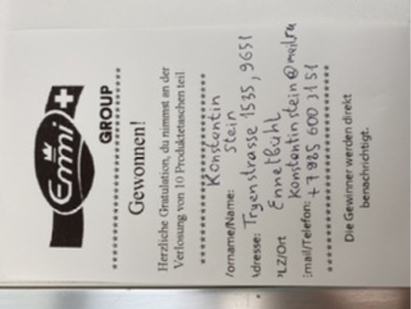 Emmi
GROUP
Gewonnen!
Herzliche Gratulation, du nimmst an der
Verlosung von 10 Produktetaschen teil
Konstantin
Vorname/Name: Stein
Adresse: Tryenstrasse 1535, 9651
PLZ/Ort Ennetbühl
Email/Telefon: konstantinstein@mail.ru
+7 985 600 3151
Die Gewinner werden direkt
benachrichtigt.